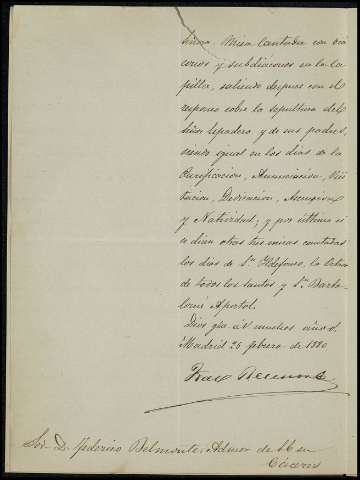 Misa Cantada con diá
conos y subdiáconos en la Ca
pilla, saliendo despues con el
responso sobre la sepultura del
Señor fundador y de sus padres,
siendo igual en los dias de la
Purificacion, Anunciacion, Visi
tacion, Dedicacion, Asuncion
y Natividad; y por último si
se dicen otras tres misas cantadas
los dias de Sn. Ildefonso, la Octava
de todos los santos y Sn. Barto-
lomé Apostol.
Dios gue á V. muchos años.
Madrid 26 febrero de 1880
Sor. D. Federico Belmonte, Admor de
Cáceres